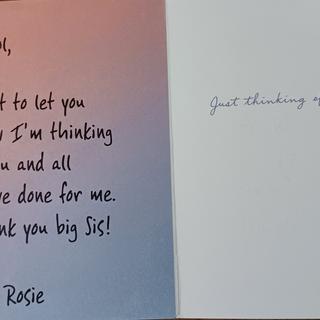 ol,
t to let you
I'm thinking
u and all
ve done for me.
nk you big Sis!
Rosie
Just thinking of